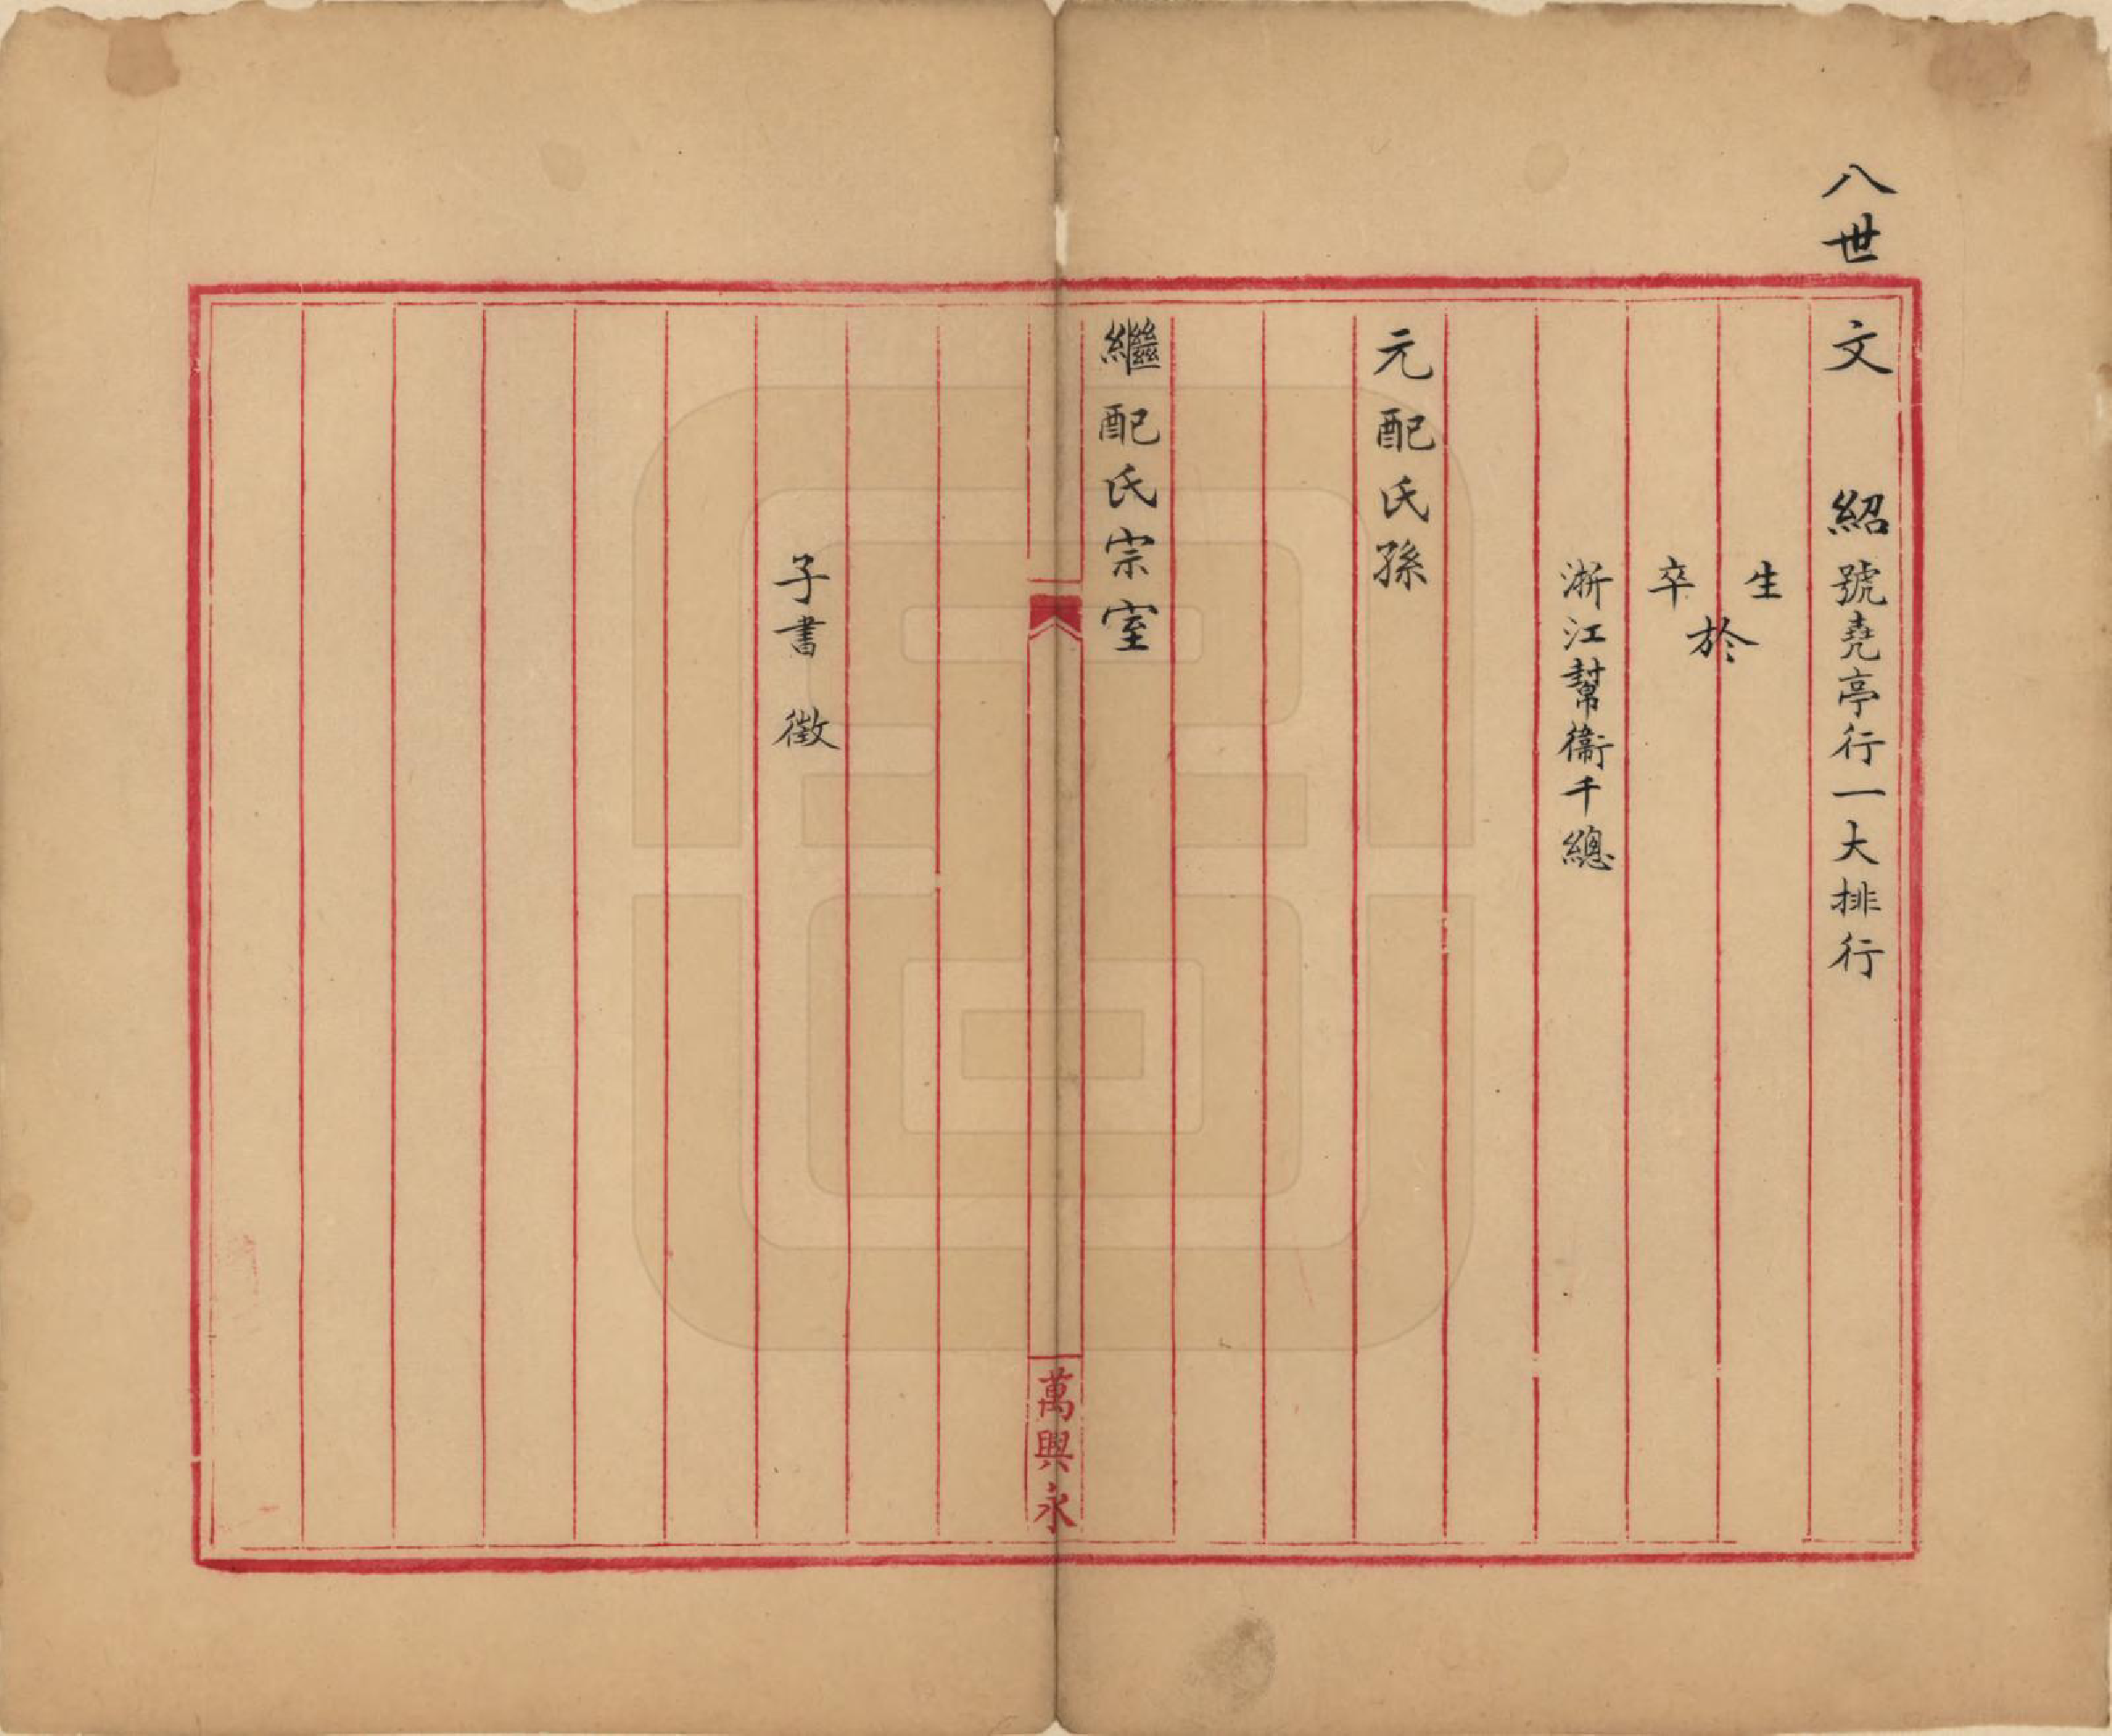 八世
文　紹號堯亭行一大排行
生
於
卒
浙江幫衞千總
元配氏孫
繼配氏宗室
萬興永
子書　徵